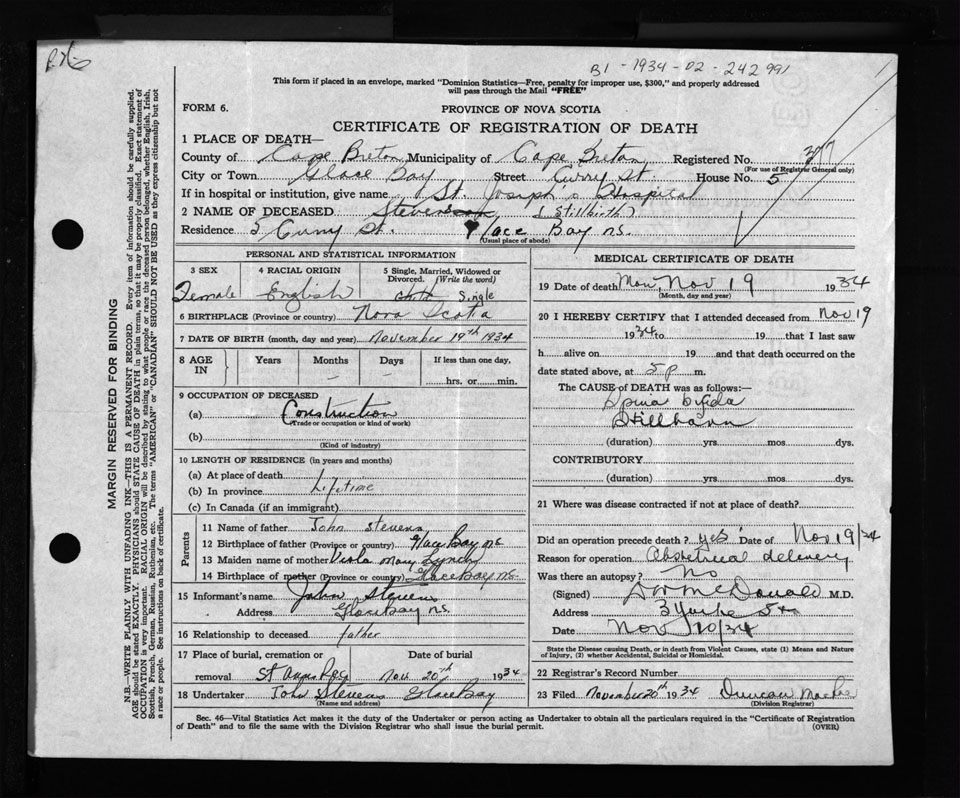 B1-1934-02-242991
This form if placed in an envelope, marked "Dominion Statistics—Free, penalty for improper use, $300," and properly addressed
will pass through the Mail "FREE"
FORM 6.
PROVINCE OF NOVA SCOTIA
CERTIFICATE OF REGISTRATION OF DEATH
1 PLACE OF DEATH—
County of Cape Breton, Municipality of Cape Breton, Registered No. 377
(For use of Registrar General only)
City or Town Glace Bay Street Curry St. House No. 5
If in hospital or institution, give name St. Joseph's Hospital
2 NAME OF DECEASED Stevens (Stillbirth)
Residence 5 Curry St. Glace Bay N.S.
(Usual place of abode)
PERSONAL AND STATISTICAL INFORMATION
3 SEX
Female
4 RACIAL ORIGIN
English
5 Single, Married, Widowed or Divorced. (Write the word)
Single
6 BIRTHPLACE (Province or country) Nova Scotia
7 DATE OF BIRTH (month, day and year) November 19th 1934
8 AGE IN Years Months Days If less than one day,
hrs. or min.
9 OCCUPATION OF DECEASED
(a) Construction
(Trade or occupation or kind of work)
(b)
(Kind of industry)
10 LENGTH OF RESIDENCE (in years and months)
(a) At place of death
(b) In province Lifetime
(c) In Canada (if an immigrant)
Parents
11 Name of father John Stevens
12 Birthplace of father (Province or country) Glace Bay N.S.
13 Maiden name of mother Viola Mary Lynch
14 Birthplace of mother (Province or country) Glace Bay N.S.
15 Informant's name John Stevens
Address Glace Bay N.S.
16 Relationship to deceased father
17 Place of burial, cremation or removal St Anns
Date of burial Nov. 20th 1934
18 Undertaker John Stevens Glace Bay
(Name and address)
MEDICAL CERTIFICATE OF DEATH
19 Date of death Mon, Nov 19 1934
(Month, day and year)
20 I HEREBY CERTIFY that I attended deceased from Nov 19
1934 to 19 that I last saw
h alive on 19 and that death occurred on the
date stated above, at 5 p m.
The CAUSE OF DEATH was as follows:—
Spina bifida
Stillborn
(duration) yrs. mos. dys.
CONTRIBUTORY
(duration) yrs. mos. dys.
21 Where was disease contracted if not at place of death?
Did an operation precede death? yes Date of Nov 19/34
Reason for operation Obstetrical delivery
Was there an autopsy? No
(Signed) McDonald M.D.
Address 3 Yorke St
Date Nov 20/34
State the Disease causing Death, or in death from Violent Causes, state (1) Means and Nature
of Injury, (2) whether Accidental, Suicidal or Homicidal.
22 Registrar's Record Number
23 Filed November 20th 1934 Duncan
(Division Registrar)
Sec. 46—Vital Statistics Act makes it the duty of the Undertaker or person acting as Undertaker to obtain all the particulars required in the "Certificate of Registration
of Death" and to file the same with the Division Registrar who shall issue the burial permit. (OVER)
MARGIN RESERVED FOR BINDING
N.B.—WRITE PLAINLY WITH UNFADING INK—THIS IS A PERMANENT RECORD. Every item of information should be carefully supplied.
AGE should be stated EXACTLY. PHYSICIANS should STATE CAUSE OF DEATH in plain terms, so that it may be properly classified. Exact statement of
OCCUPATION is very important. RACIAL ORIGIN will be described by stating to what people or race the deceased person belonged, whether English, Irish,
Scottish, French, German, Russian, Ruthenian, etc. The terms "AMERICAN" or "CANADIAN" SHOULD NOT BE USED as they express citizenship but not
a race or people. See instructions on back of certificate.